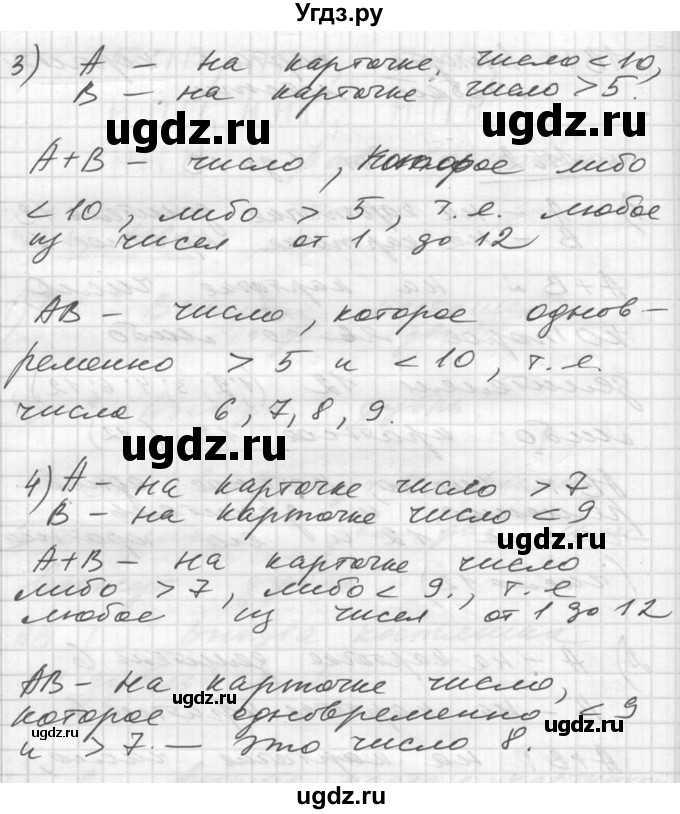 Угдз.ру
3) А – на карточке число < 10,
В – на карточке число > 5.
ugdz.ru ugdz.ru
А+В – число, которое либо
< 10, либо > 5, т.е. любое
из чисел от 1 до 12
АВ – число, которое однов-
ременно > 5 и < 10, т.е.
числа 6, 7, 8, 9.
ugdz.ru
4) А – на карточке число > 7
В – на карточке число < 9
ugdz.ru
А+В – на карточке число
либо > 7, либо < 9., т.е
любое из чисел от 1 до 12
АВ – на карточке число,
ugdz.ru
которое одновременно < 9
ugdz.ru
и > 7. — это число 8.
ugdz.ru